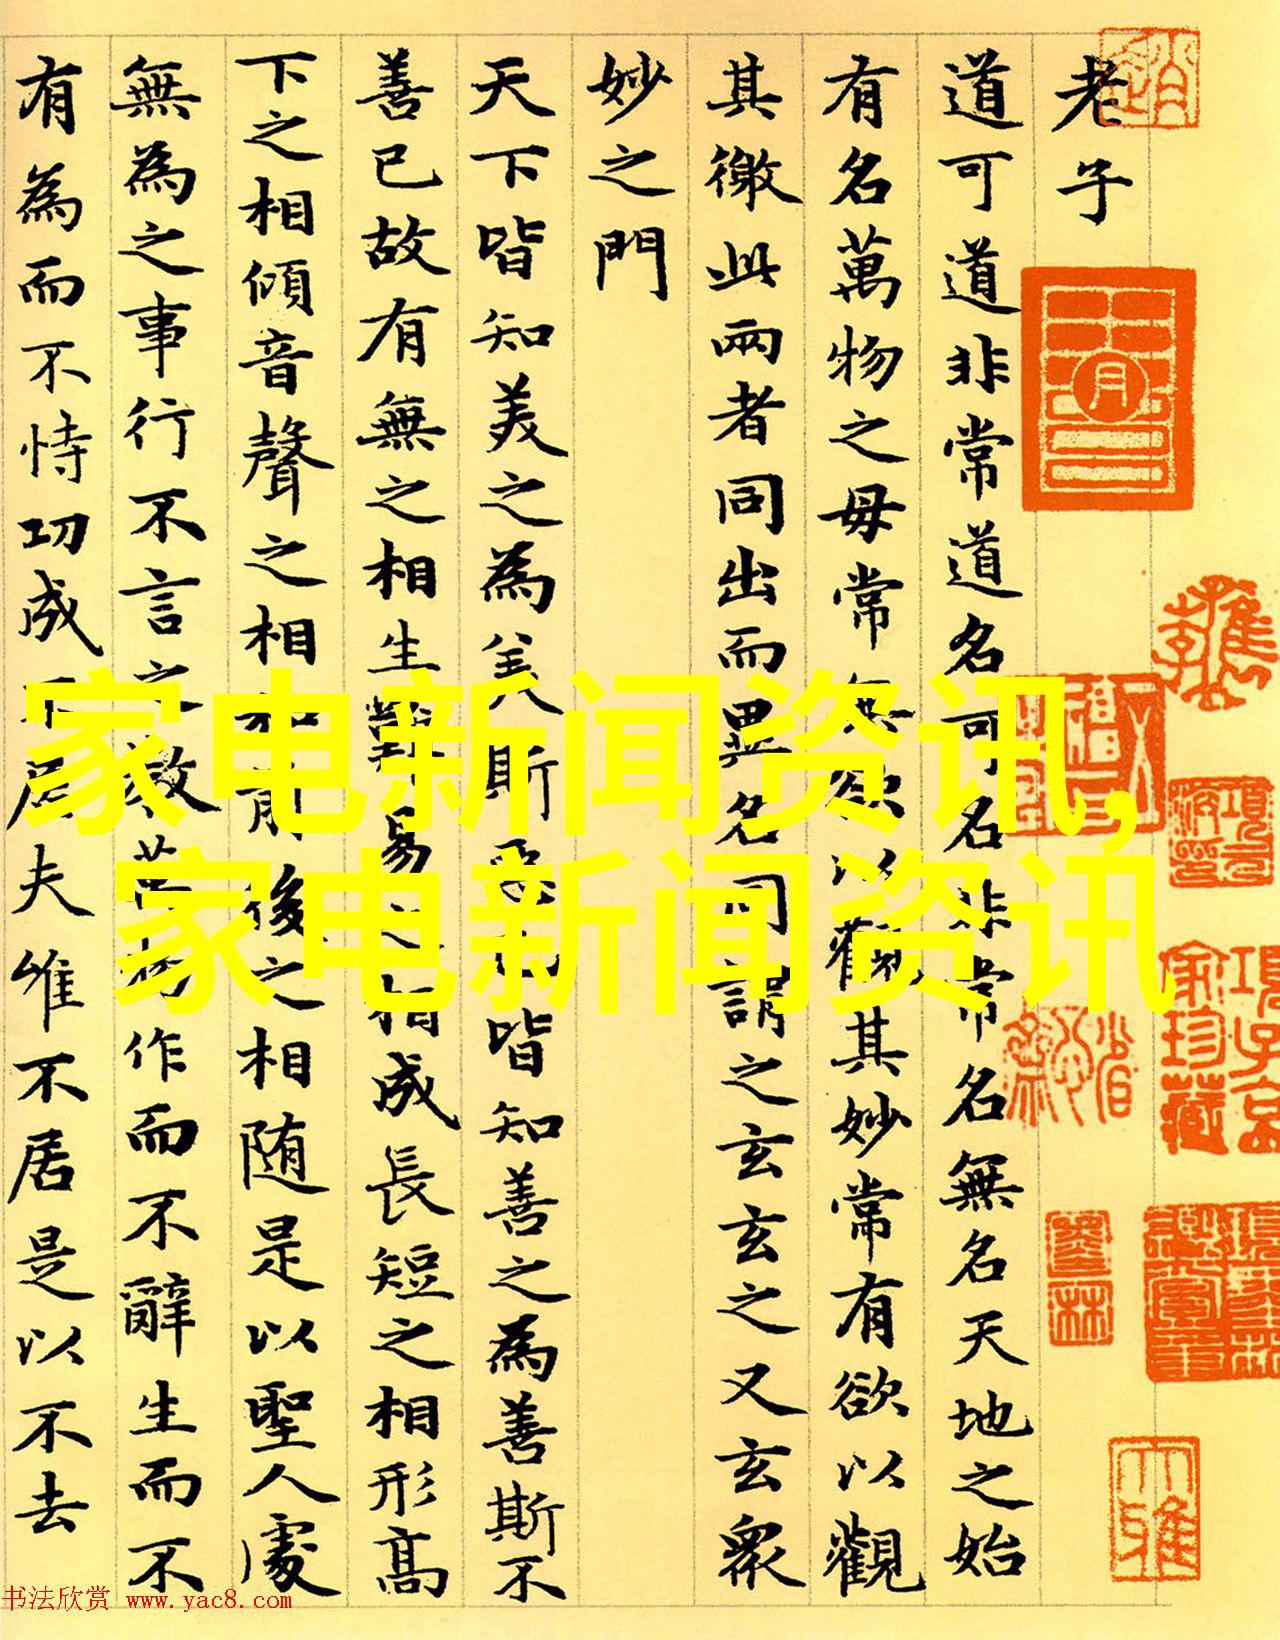 老子
道可道非常道名可名非常名無名天地之始
有名萬物之毋常無欲以觀其妙常有欲以觀
其徼此兩者同出而異名同謂之玄玄之又玄眾
妙之門
天下皆知美之為美斯惡已皆知善之為善斯不
善已故有無之相生難易之相成長短之相形高
下之相傾音聲之相和前後之相随是以聖人處
無為之事行不言之教萬物作而不辭生而不
有為而不恃功成不居夫唯不居是以不去
家电新闻资讯,
家电新闻资讯
項子京
家珍藏
书法欣赏 www.yac8.com